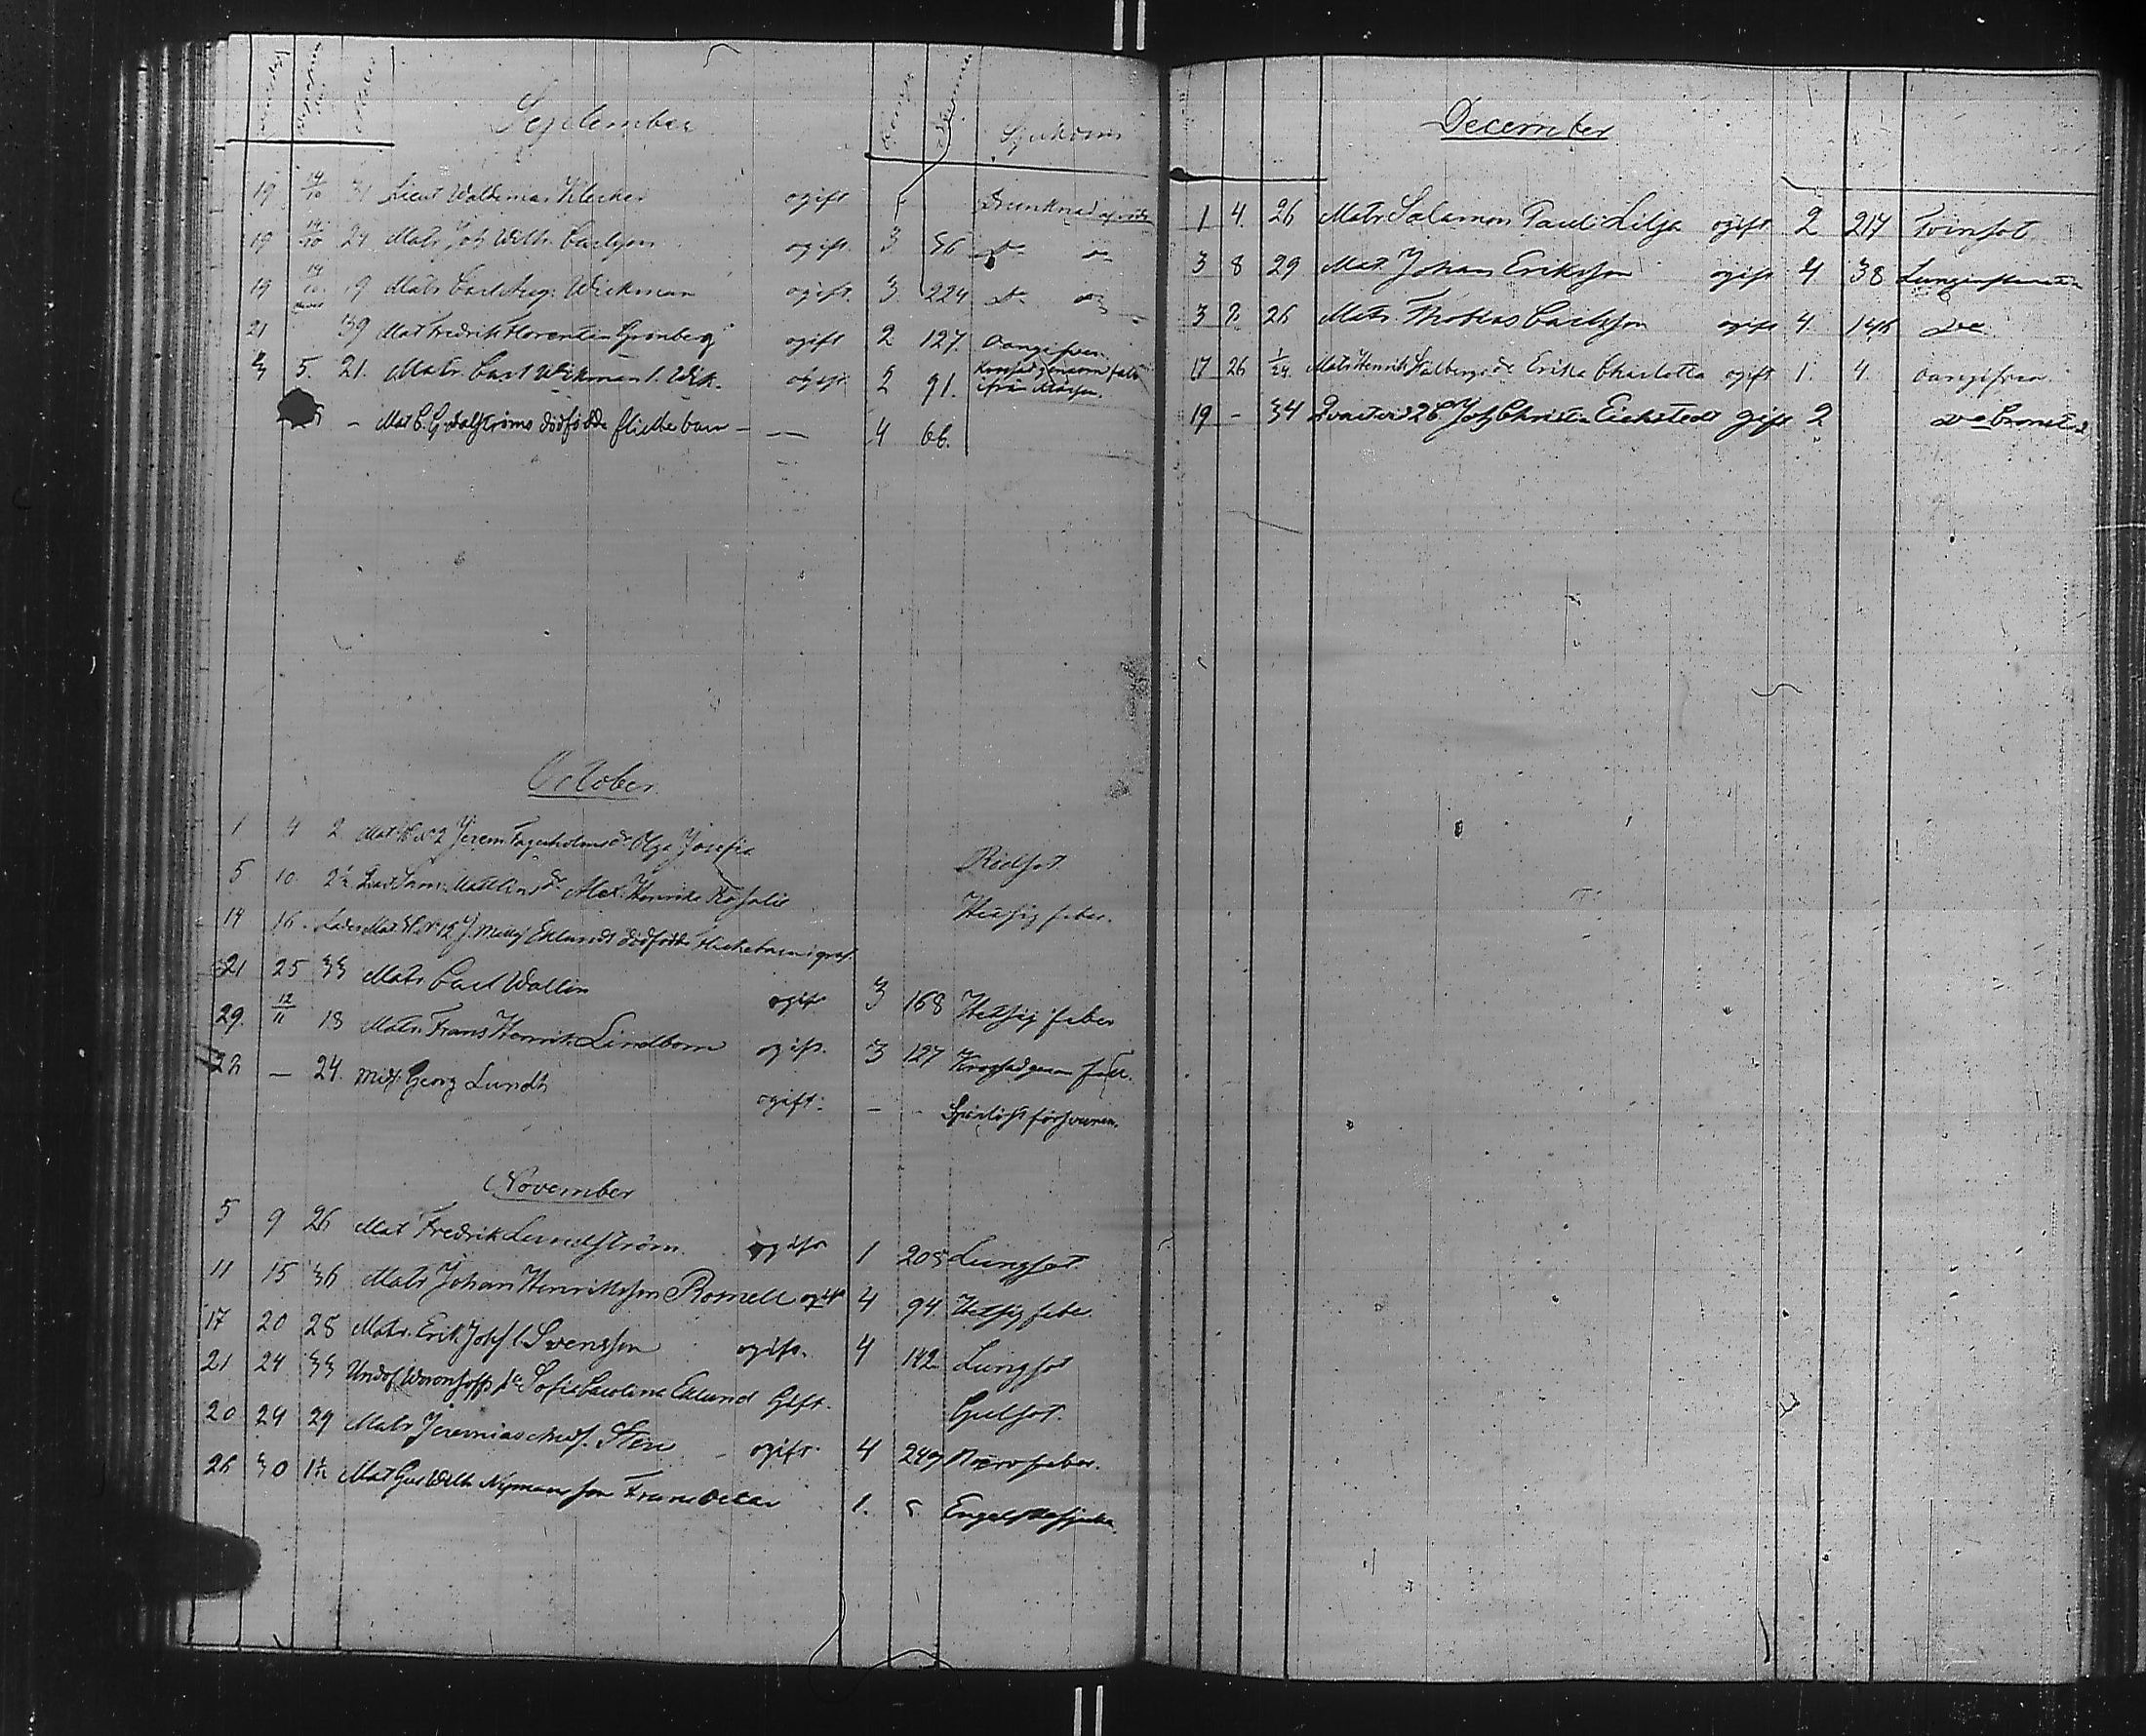 September
19 19/10 31 Lieut Waldemar Klecker ogift Drunknad
19 19/10 24 Matr Joh Wilh. Carlsson ogift 3 56 Do
19 19/10 19 Matr Carl Aug. Wickman ogift 3 224 Do
21 39 Mat Fredrik Florentin Grönberg ogift 2 127. Oangifven.
5. 21. Matr. Carl Wikman l. Wik. ogift 2 91. Krossad genom fall ifrån Mårsen.
– Mat C. G. Dalströms dödfödde flickebarn – — 4 66.
October
1 4 2 Mat No 2 Jerem Fagerholms dr Olga Josefin Rödsot
5 10. 2½ Mattlins dr Alex. Henrika Rosalie Hetsig feber.
14 16. Mat No 12 J. Eklunds dödfödde flickebarn
21 25 33 Matr Carl Wallin ogift 3 168 Hetsig feber
29. 12/11 18 Matr Frans Henrik Lindbom ogift. 3 127 Krossad genom fall.
22 — 24. Georg Lundh ogift. – Spårlöst försvunnen.
November
5 9 26 Mat Fredrik Lundström. ogift 1 205 Lungsot.
11 15 36 Matr Johan Henriksson Romell ogift 4 94. Hetsig feber.
17 20 28 Matr. Erik Johs l. Svensson ogift. 4 142 Lungsot
21 24 33 Undof. Woronsoffs Sofia Carolina Eklund Gift. Gulsot.
20 24 29 Matr Jeremias Sten – ogift. 4 249 Nervfeber.
26 30 1½ Mat Gust Wilh Nymans son Frans Oskar 1. 5 Engelska sjukan
December
1 4. 26 Matr. Salamon Pauli Lilja ogift 2 217 Tvinsot
3 8 29 Mat. Johan Eriksson ogift 4 38 Lunginflammation
3 8. 26 Matr. Thobias Carlsson ogift 4. 146 Do
17 26 1/24. Matr Henrik Stålbergs dr Erika Charlotta ogift 1. 4. Oangifven.
19 – 34 Joh Christian Eichstedt gift 2 Do Cronstad